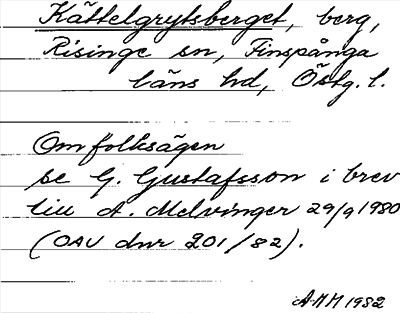 Kättelgrytsberget, berg,
Risinge sn, Finspånga
läns hd, Östg. l.
Om folksägen
se G. Gustafsson i brev
till A. Melvinger 29/9 1980
(OAU dnr 201/82).
AMM 1982